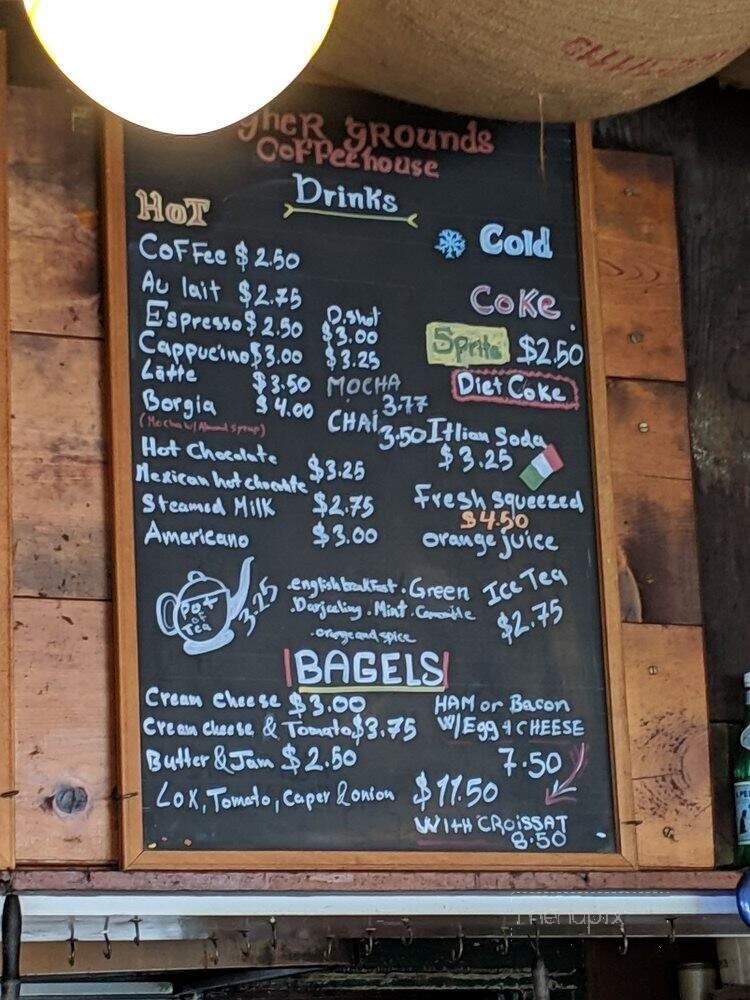 gher Grounds
Coffee house
Drinks
HOT
Coffee $2.50
Au lait $2.75
Espresso $2.50
D.shot $3.00
Cappucino $3.00 $3.25
Latte $3.50
MOCHA 3.77
Borgia $4.00
(Mocha w/ Almond Syrup)
CHAi 3.50
Hot Chocolate
Mexican hot chocolate $3.25
Steamed Milk $2.75
Americano $3.00
Cold
Coke
Sprite $2.50
Diet Coke
Itlian Soda
$3.25
Fresh squeezed
$4.50
orange juice
Ice Tea
$2.75
Pot
of
Tea
3.25
.english breakfast .Green
.Darjeeling .Mint .Camomile
.orange and spice
BAGELS
Cream cheese $3.00
Cream cheese & Tomato $3.75
Butter & Jam $2.50
Lox, Tomato, caper & onion $11.50
HAM or Bacon
W/Egg & CHEESE
7.50
WITH CROiSSAT
8.50
menupix